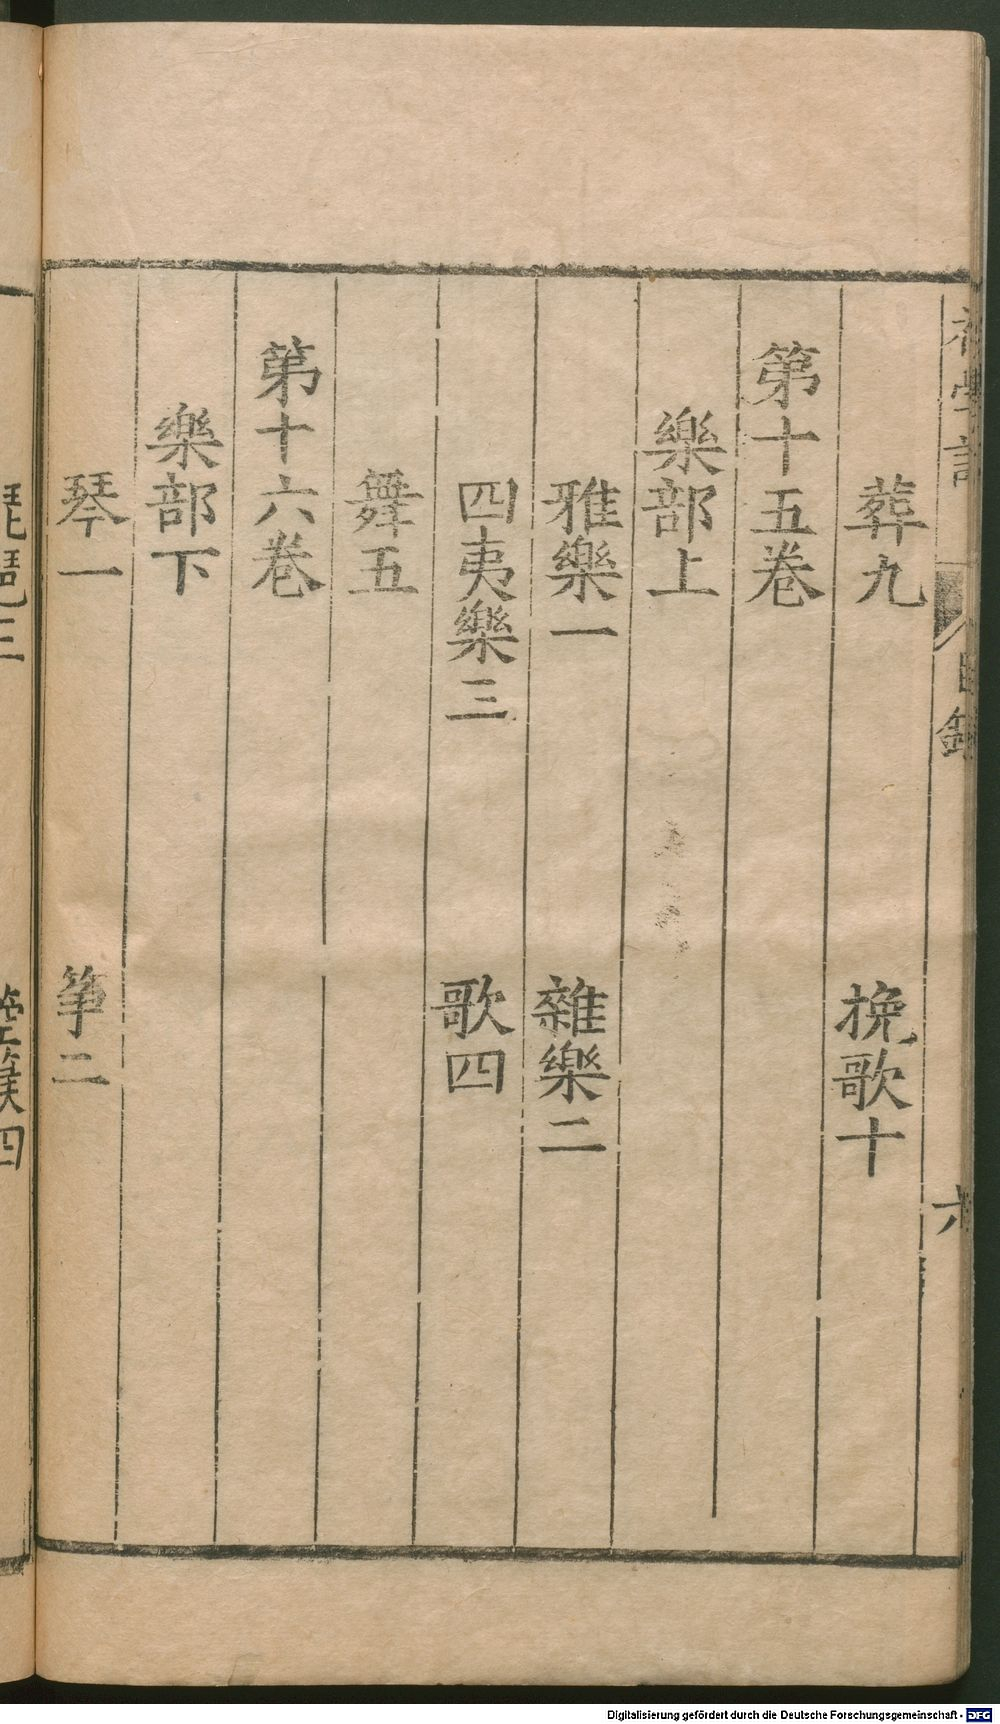 初學記 目錄 六
葬九 挽歌十
第十五卷
樂部上
雅樂一 雜樂二
四夷樂三 歌四
舞五
第十六卷
樂部下
琴一 箏二
琵琶三 箜篌四
Digitalisierung gefördert durch die Deutsche Forschungsgemeinschaft - DFG